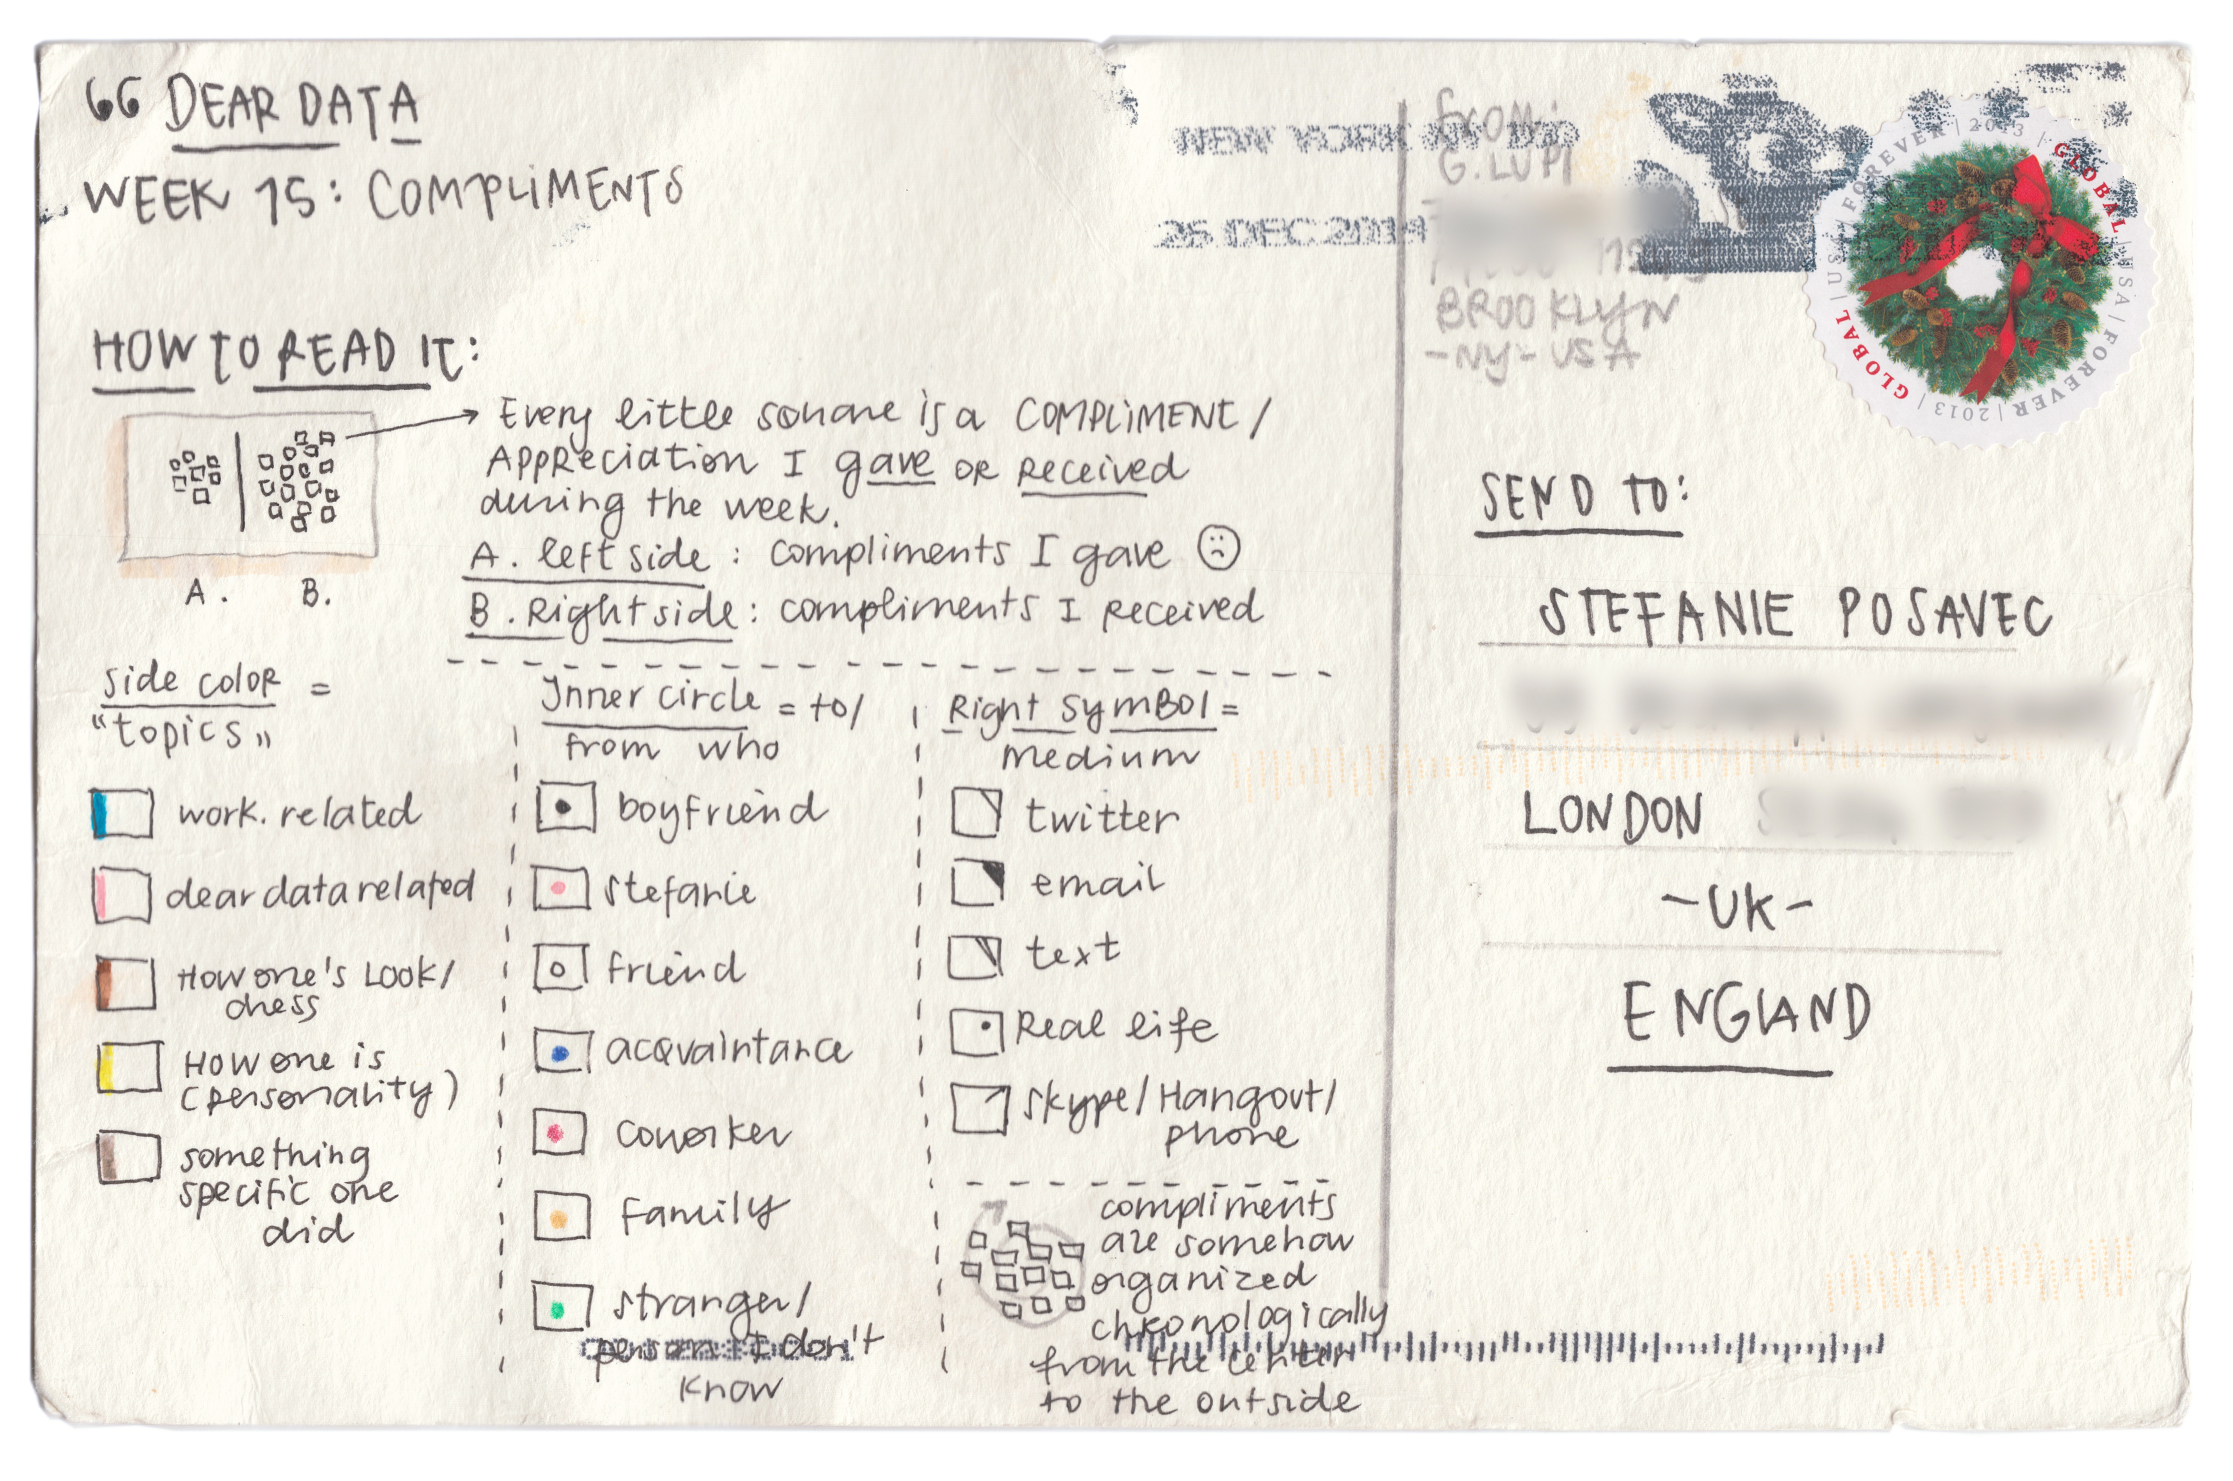 66 DEAR DATA
WEEK 15: COMPLIMENTS
HOW TO READ IT:
Every little square is a COMPLIMENT/
Appreciation I gave or received
during the week.
A. left side: compliments I gave
B. Right side: compliments I received
A. B.
side color =
"topics"
work. related
dear data related
How one's LOOK/
dress
How one is
(personality)
something
specific one
did
Inner circle = to/
from who
boyfriend
stefanie
friend
acqvaintance
coworker
family
stranger/
person I don't
know
Right symbol =
medium
twitter
email
text
Real life
skype/Hangout/
phone
compliments
are somehow
organized
chronologically
from the center
to the outside
NEW YORK NY 100
26 DEC 2014
from:
G. LUPI
BROOKLYN
-NY-USA
FOREVER | 2013 | GLOBAL | USA | FOREVER | 2013 | GLOBAL | USA
SEND TO:
STEFANIE POSAVEC
LONDON
-UK-
ENGLAND